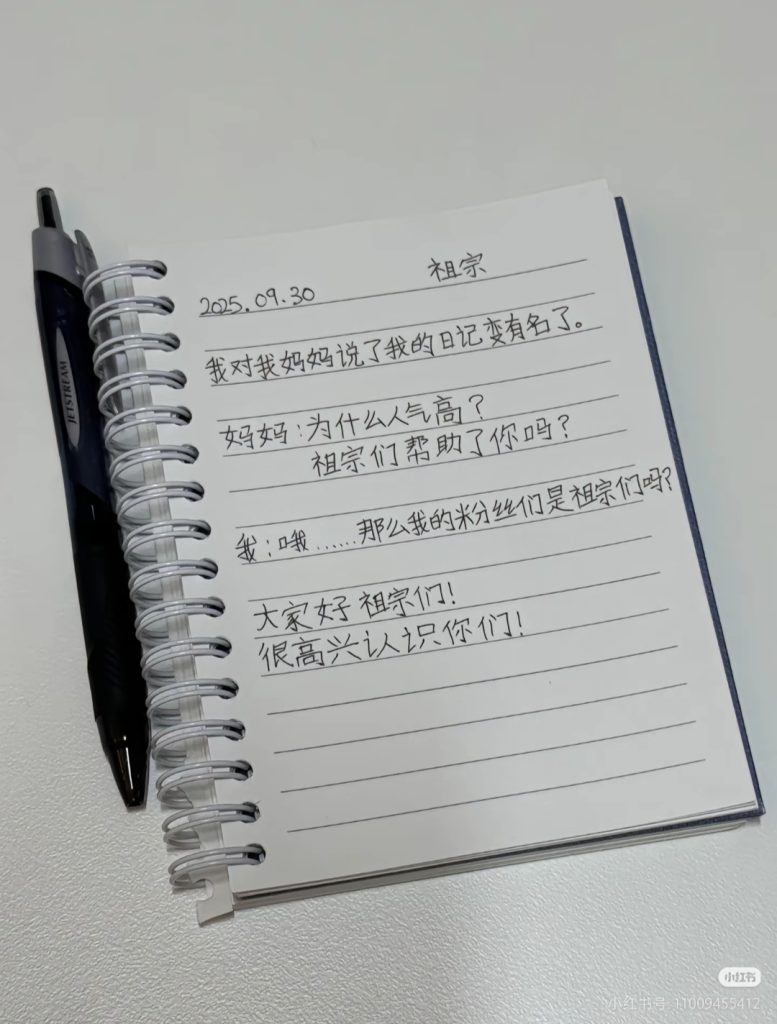 祖宗
2025.09.30
我对我妈妈说了我的日记变有名了。
妈妈:为什么人气高?
祖宗们帮助了你吗?
我:哦......那么我的粉丝们是祖宗们吗?
大家好 祖宗们!
很高兴认识你们!
JETSTREAM
小红书
小红书号 11009455412